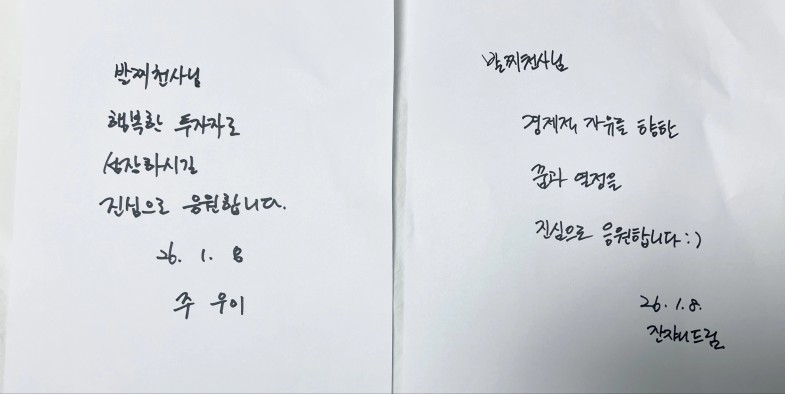 발찌천사님
행복한 투자자로
성장하시길
진심으로 응원합니다.
26. 1. 8
주 우이
발찌천사님
경제적 자유를 향한
꿈과 열정을
진심으로 응원합니다 :)
26. 1. 8.
잔쟈니드림